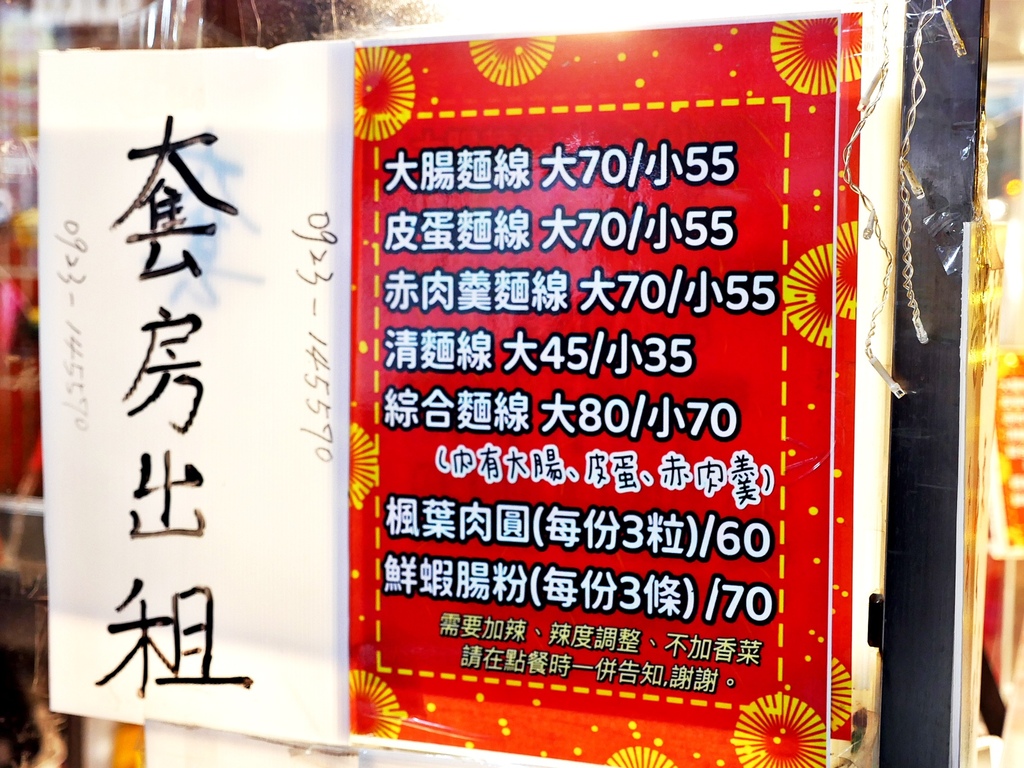 套房出租
0923-145570
0923-145570
大腸麵線 大70/小55
皮蛋麵線 大70/小55
赤肉羹麵線 大70/小55
清麵線 大45/小35
綜合麵線 大80/小70
(內有大腸、皮蛋、赤肉羹)
楓葉肉圓(每份3粒)/60
鮮蝦腸粉(每份3條) /70
需要加辣、辣度調整、不加香菜
請在點餐時一併告知,謝謝。